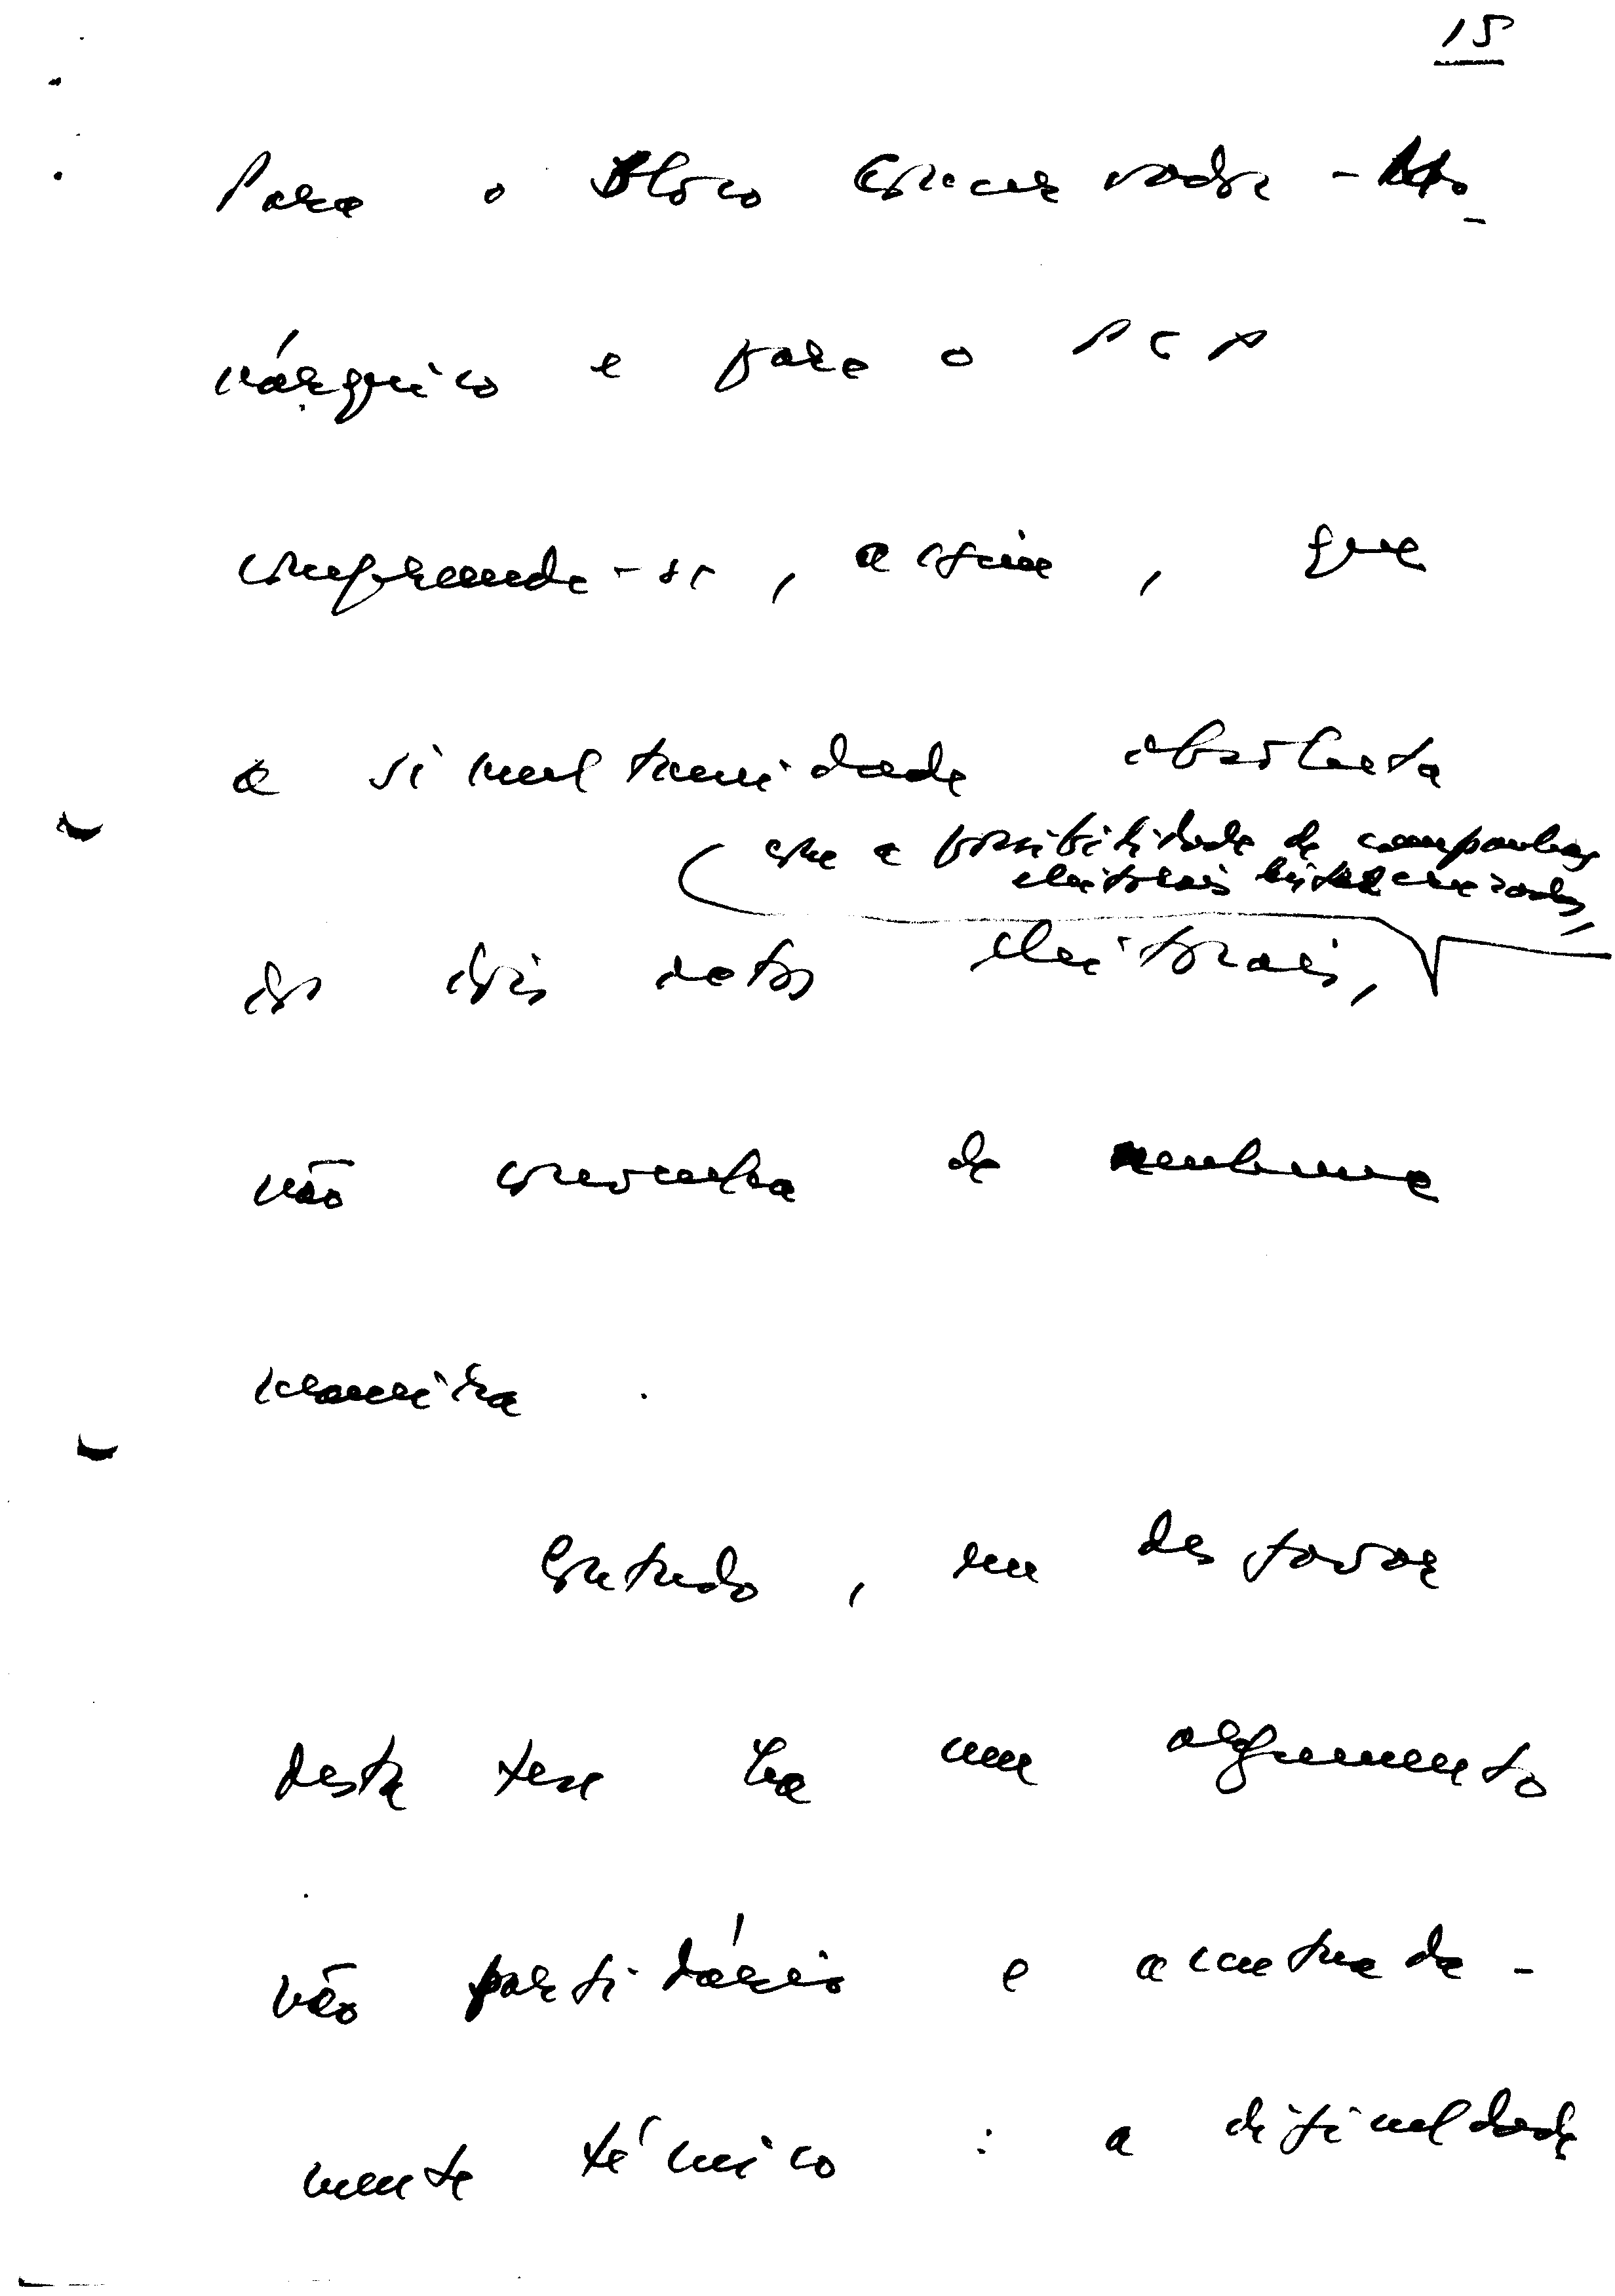 15
Para o Bloco Conservador-Mo-
nárquico e para o PCP
compreende-se, assim, que
a simultaneidade absoluta
com a possibilidade de campanhas
eleitorais
dos dois actos eleitorais,
não convenha de nenhuma
maneira.
Contudo, em desfavor
desta tese há um argumento
não partidário e acentuada-
mente técnico : a dificuldade